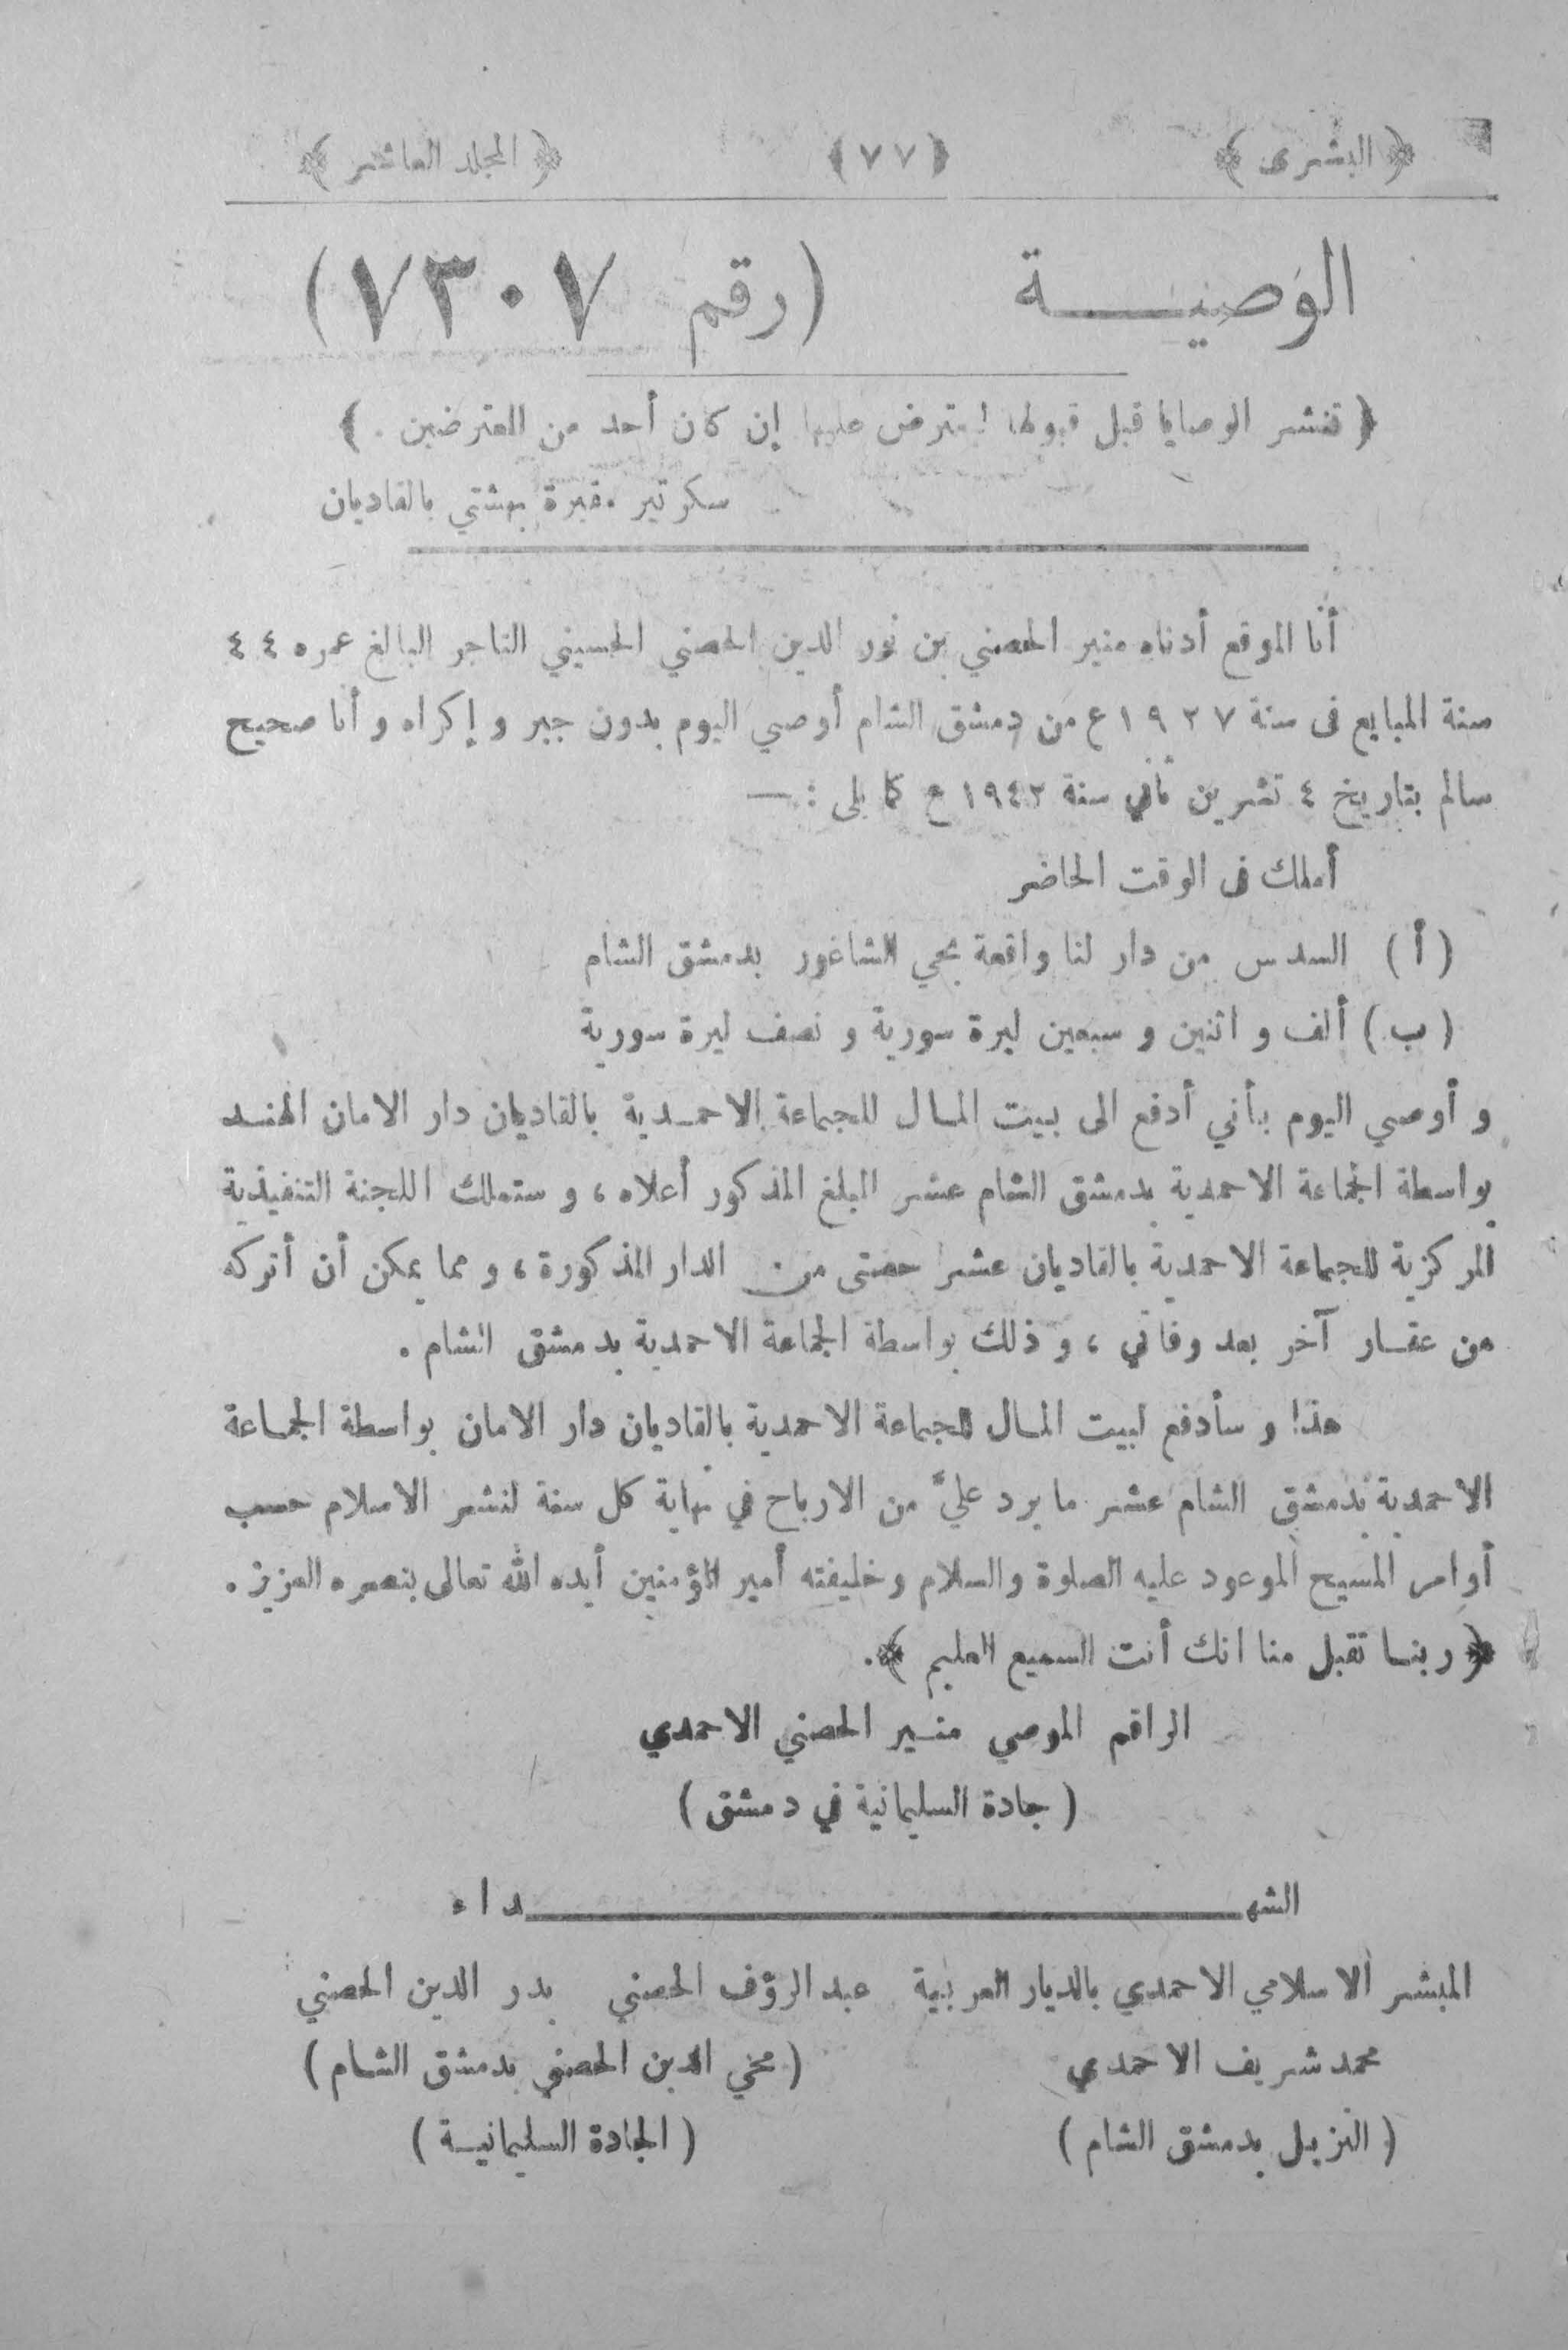 ﴿ البشرى ﴾ ﴿ ٧٧ ﴾ ﴿ المجلد العاشر ﴾
الوصيـــــة (رقم ٧٣٠٧)
﴿ تنشر الوصايا قبل قبولها ليعترض عليها إن كان أحد من المعترضين . ﴾
سكرتير مقبرة بهشتي بالقاديان
أنا الموقع أدناه منير الحصني بن نور الدين الحصني الحسيني التاجر البالغ عمره ٤٤
سنة المبايع فى سنة ١٩٢٧ع من دمشق الشام أوصي اليوم بدون جبر و إكراه و أنا صحيح
سالم بتاريخ ٤ تشرين ثاني سنة ١٩٤٢ ع كما يلى : —
أملك فى الوقت الحاضر
( أ ) السدس من دار لنا واقعة بحي الشاغور بدمشق الشام
( ب ) ألف و اثنين و سبعين ليرة سورية و نصف ليرة سورية
و أوصي اليوم بأني أدفع الى بيت المال للجماعة الاحمـدية بالقاديان دار الامان الهنـد
بواسطة الجماعة الاحمدية بدمشق الشام عشر المبلغ المذكور أعلاه ، و ستملك اللجنة التنفيذية
المركزية للجماعة الاحمدية بالقاديان عشر حصتى من الدار المذكورة ، و مما يمكن أن أتركه
من عقـار آخر بعد وفاتي ، و ذلك بواسطة الجماعة الاحمدية بدمشق الشام .
هذا و سأدفع لبيت المـال للجماعة الاحمدية بالقاديان دار الامان بواسطة الجمـاعة
الاحمدية بدمشق الشام عشر ما يرد عليّ من الارباح في نهاية كل سنة لنشر الاسلام حسب
أوامر المسيح الموعود عليه الصلوة والسلام وخليفته أمير المؤمنين أيده الله تعالى بنصره العزيز .
﴿ ربنـا تقبل منا انك أنت السميع العليم ﴾ .
الراقم الموصي منـير الحصني الاحمدي
( جادة السليمانية في دمشق )
الشهــــــــــداء
المبشر الاسلامي الاحمدي بالديار العربية عبد الرؤف الحصني بدر الدين الحصني
محمد شريف الاحمدي ( محي الدين الحصني بدمشق الشـام )
( النزيل بدمشق الشام ) ( الجادة السليمانيـة )